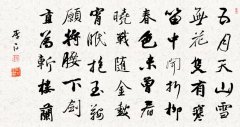 五月天山雪
無花只有寒
笛中聞折柳
春色未曾看
曉戰隨金鼓
宵眠抱玉鞍
願將腰下劍
直為斬樓蘭